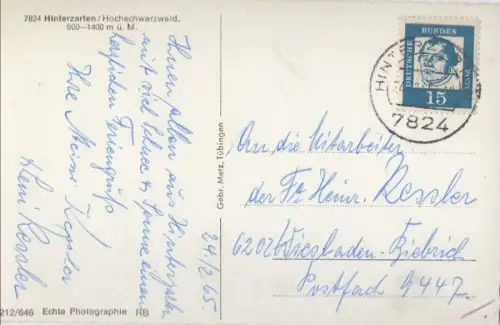 7824 Hinterzarten / Hochschwarzwald,
900–1400 m ü. M.
Ihnen allen aus Hinterzarten
mit viel Schnee & Sonne einen
herzlichen Feriengruß
Ihre
Kessler
Heini Kessler
24/2 65
212/646 Echte Photographie RB
Gebr. Metz, Tübingen
DEUTSCHE BUNDESPOST
15
7824
An die Mitarbeiter
der Fa Heinr. Kessler
6202 Wiesbaden-Biebrich
Postfach 9447